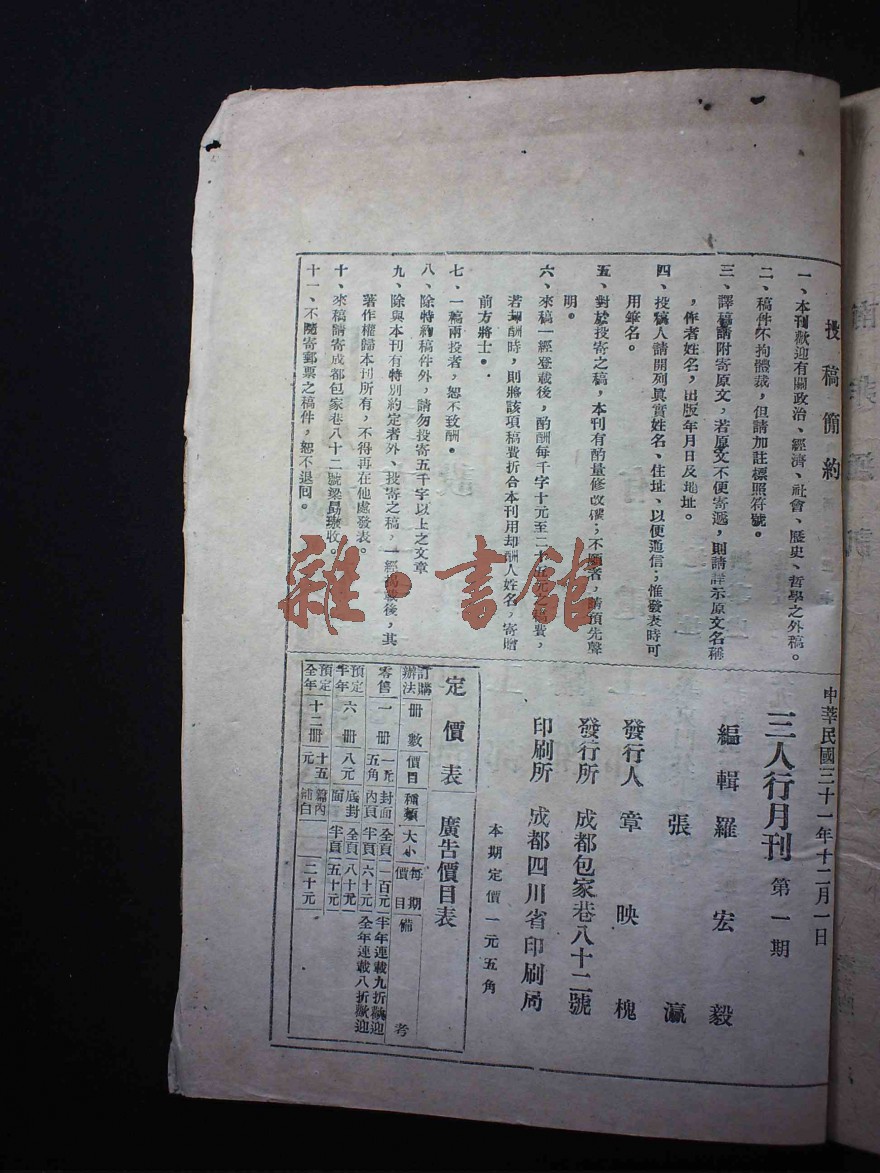 投稿簡約
一、本刊歡迎有關政治、經濟、社會、歷史、哲學之外稿。
二、稿件不拘體裁，但請加註標照符號。
三、譯稿請附寄原文，若原文不便寄遞，則請詳示原文名稱
，作者姓名，出版年月日及地址。
四、投稿人請開列眞實姓名、住址、以便通信；惟發表時可
用筆名。
五、對於投寄之稿，本刊有酌量修改權；不願者，請預先聲
明。
六、來稿一經登載後，酌酬每千字十元至二十五元之稿費，
若却酬時，則將該項稿費折合本刊用却酬人姓名，寄贈
前方將士。
七、一稿兩投者，恕不致酬。
八、除特約稿件外，請勿投寄五千字以上之文章
九、除與本刊有特別約定者外、投寄之稿，一經揭載後，其
著作權歸本刊所有，不得再在他處發表。
十、來稿請寄成都包家巷八十二號梁勗收。
十一、不隨寄郵票之稿件，恕不退回。
中華民國三十一年十二月一日
三人行月刊 第一期
編輯 羅宏毅
張瀛
發行人 章映槐
發行所 成都包家巷八十二號
印刷所 成都四川省印刷局
本期定價一元五角
定價表
訂購辦法 冊數 價目
零售 一冊 一元五角
預定半年 六冊 八元
預定全年 十二冊 十五元
廣告價目表
種類 大小 每期價目 備考
封面內頁 全頁 一百元 半年連載九折歡迎
半頁 六十元 全年連載八折歡迎
底封面 全頁 八十元
半頁 五十元
篇內補白 二十元
雜·書館